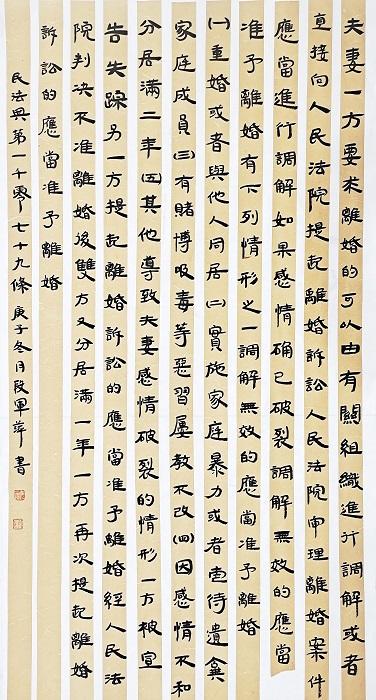 夫妻一方要求離婚的可以由有關組織進行調解或者
直接向人民法院提起離婚訴訟人民法院审理離婚案件
應當進行調解如果感情确已破裂調解無效的應當
准予離婚有下列情形之一調解無效的應當准予離婚
㈠重婚或者與他人同居㈡實施家庭暴力或者虐待遺棄
家庭成員㈢有賭博吸毒等惡習屢教不改㈣因感情不和
分居滿二年㈤其他導致夫妻感情破裂的情形一方被宣
告失踪另一方提起離婚訴訟的應當准予離婚經人民法
院判决不准離婚後雙方又分居滿一年一方再次提起離婚
訴訟的應當准予離婚
民法典第一千零七十九條庚子冬月段軍萍書